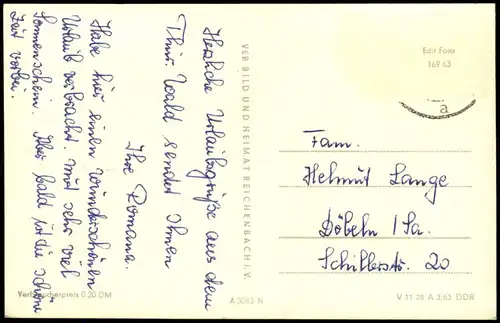 Herzliche Urlaubsgrüße aus dem
Thür. Wald sendet Ihnen
Ihre Romana.
Habe hier einen wunderschönen
Urlaub verbracht. mit sehr viel
Sonnenschein. Aber bald ist die schöne
Zeit vorbei.
Verbraucherpreis 0,20 DM
VEB BILD UND HEIMAT REICHENBACH I. V.
A 3083 N
Echt Foto
169 63
a
Fam.
Helmut Lange
Döbeln / Sa.
Schillerstr. 20
V 11 28 A 3/63 DDR